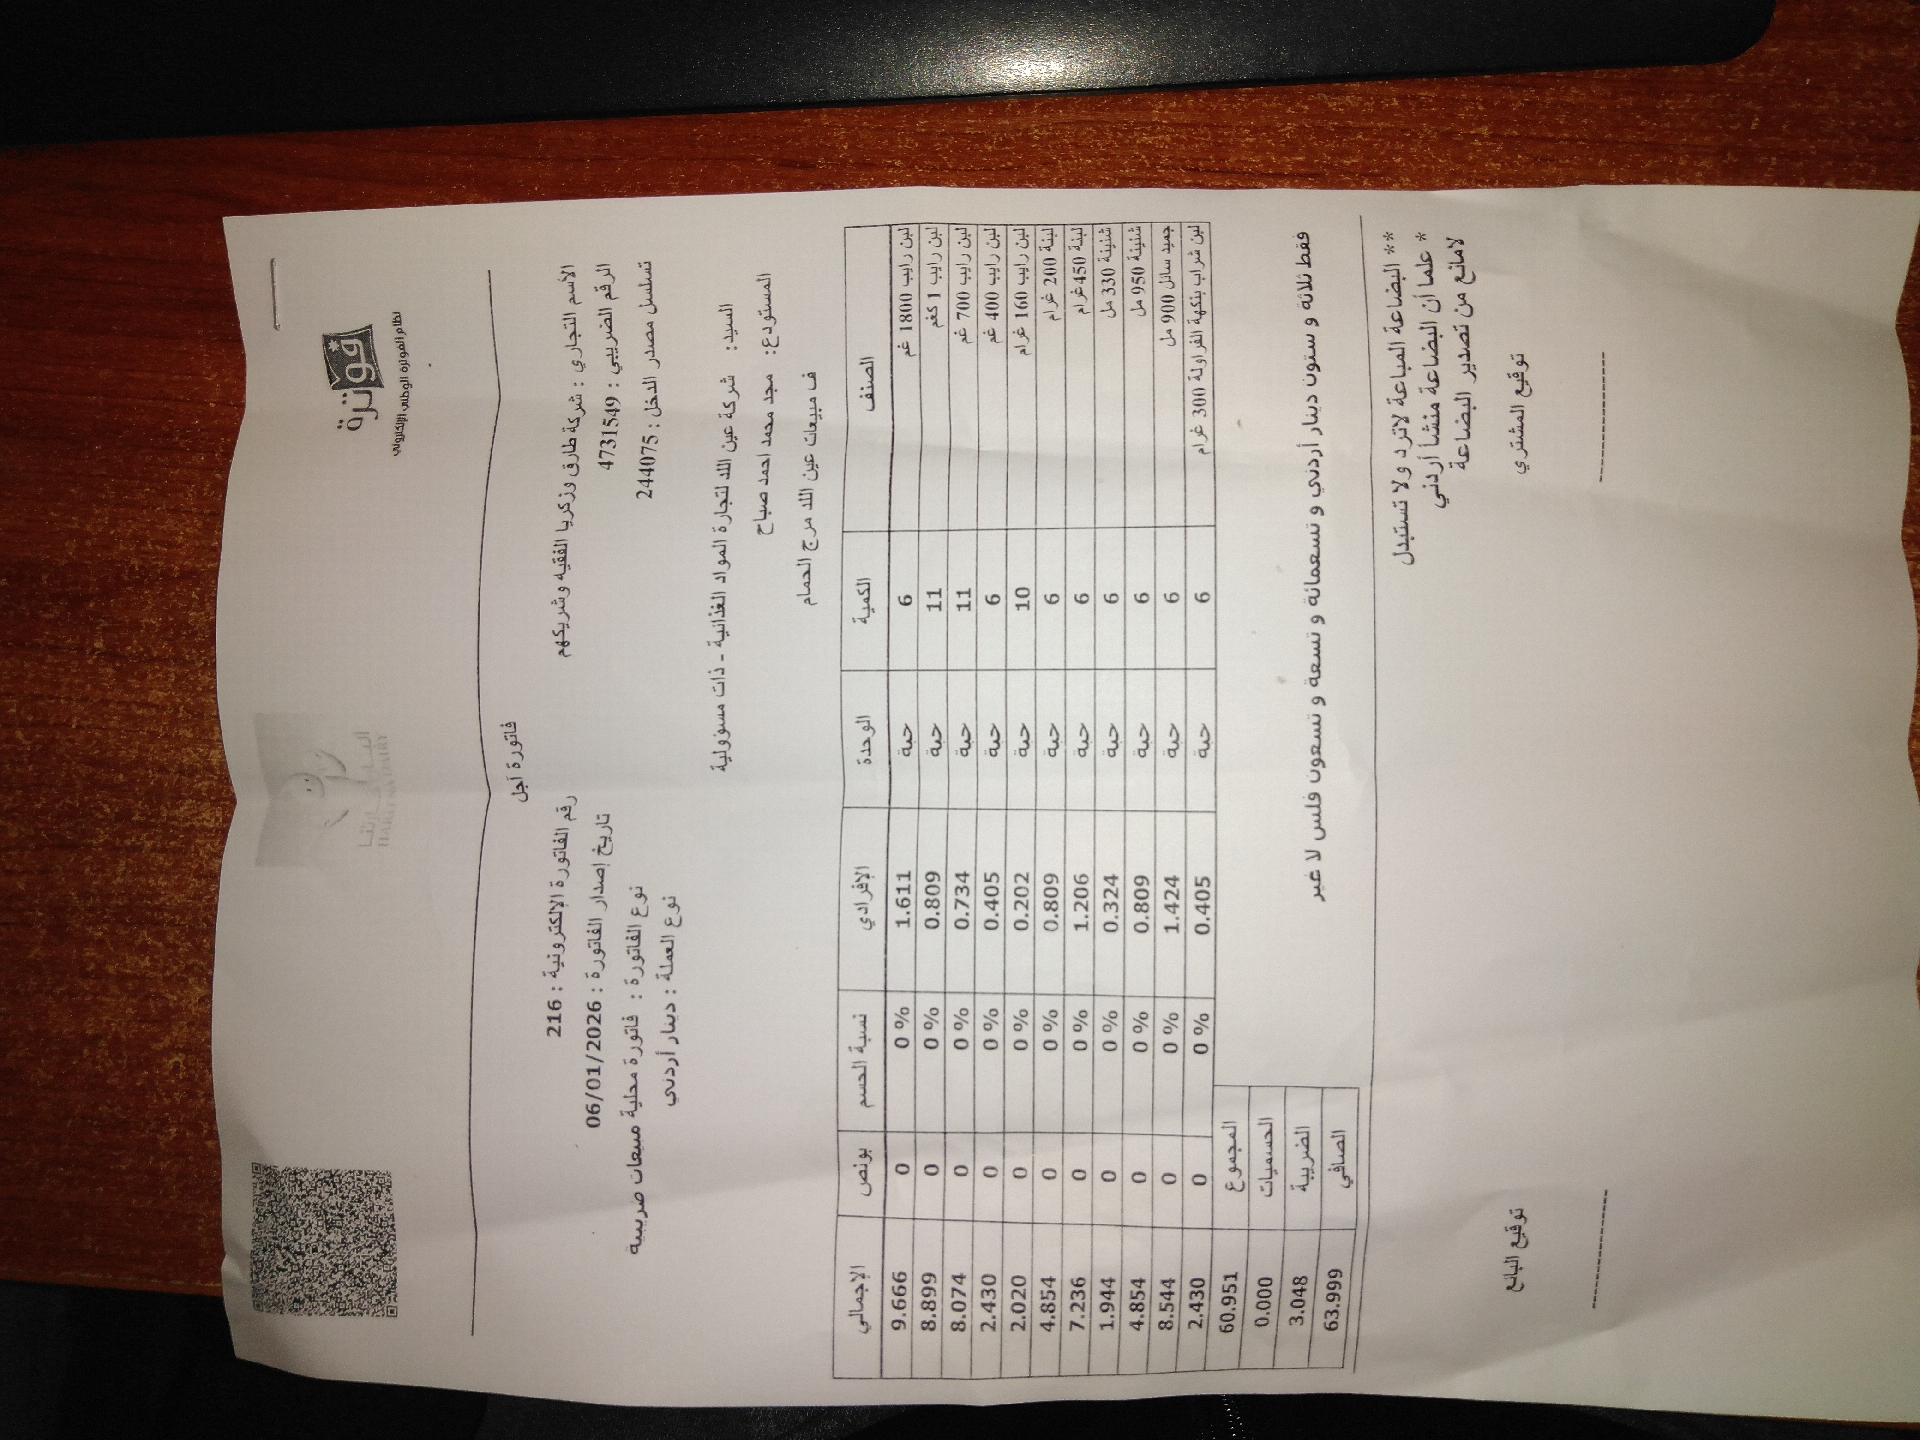 فوترة
نظام الفوترة الوطني الإلكتروني
HARETNA DAIRY
فاتورة آجل
الأسم التجاري : شركة طارق وزكريا الفقيه وشريكهم
رقم الفاتورة الإلكترونية : 216
الرقم الضريبي : 4731549
تاريخ إصدار الفاتورة : 06/01/2026
تسلسل مصدر الدخل : 244075
نوع الفاتورة : فاتورة محلية مبيعات ضريبية
نوع العملة : دينار أردني
السيد: شركة عين اللد لتجارة المواد الغذائية - ذات مسؤولية
المستودع: مجد محمد احمد صباح
ف مبيعات عين اللد مرج الحمام
الصنف الكمية الوحدة الإفرادي نسبة الحسم بونص الإجمالي
لبن رايب 1800 غم 6 حبة 1.611 0 % 0 9.666
لبن رايب 1 كغم 11 حبة 0.809 0 % 0 8.899
لبن رايب 700 غم 11 حبة 0.734 0 % 0 8.074
لبن رايب 400 غم 6 حبة 0.405 0 % 0 2.430
لبن رايب 160 غرام 10 حبة 0.202 0 % 0 2.020
لبنة 200 غرام 6 حبة 0.809 0 % 0 4.854
لبنة 450 غرام 6 حبة 1.206 0 % 0 7.236
شنينة 330 مل 6 حبة 0.324 0 % 0 1.944
شنينة 950 مل 6 حبة 0.809 0 % 0 4.854
جميد سائل 900 مل 6 حبة 1.424 0 % 0 8.544
لبن شراب بنكهة الفراولة 300 غرام 6 حبة 0.405 0 % 0 2.430
المجموع 60.951
الحسميات 0.000
الضريبة 3.048
الصافي 63.999
فقط ثلاثة و ستون دينار أردني و تسعمائة و تسعة و تسعون فلس لا غير
** البضاعة المباعة لاترد ولا تستبدل
* علما أن البضاعة منشأ أردني
لامانع من تصدير البضاعة
توقيع المشتري توقيع البائع